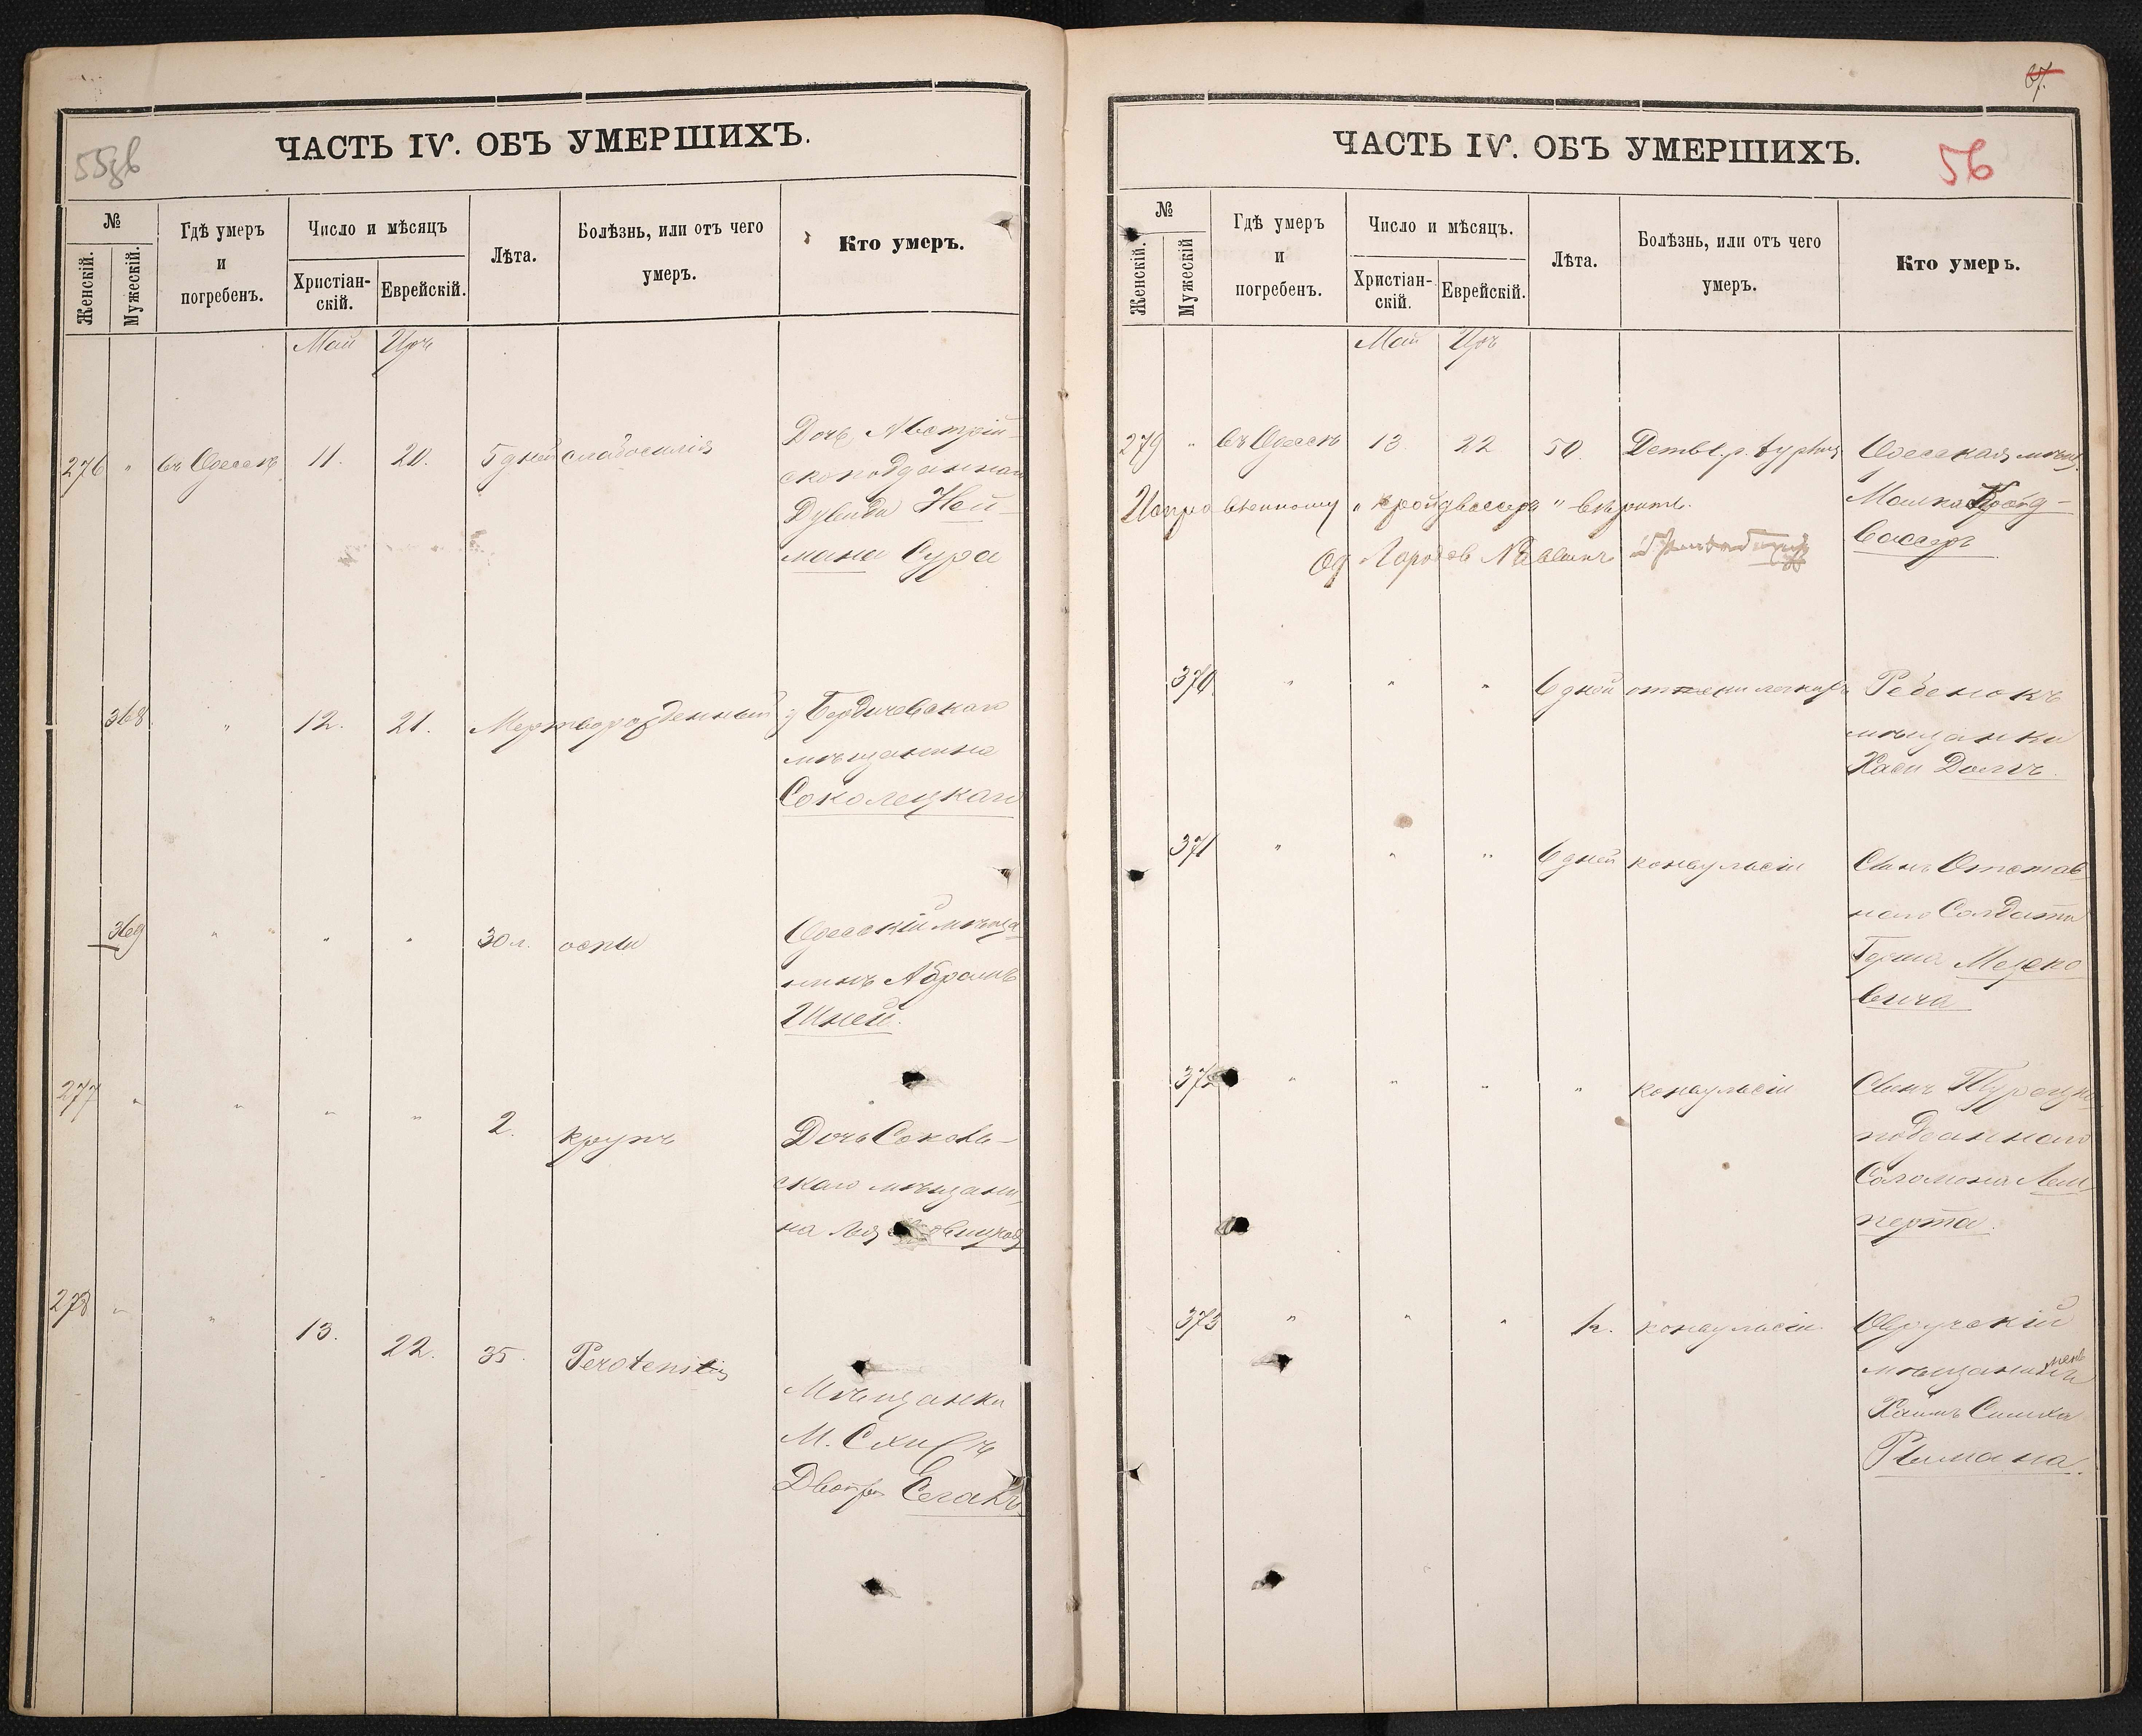 ЧАСТЬ IV. ОБЪ УМЕРШИХЪ.
№
Женскій.
Мужескій.
Гдѣ умеръ
и
погребенъ.
Число и мѣсяцъ
Христіан-
скій.
Еврейскій.
Лѣта.
Болѣзнь, или отъ чего
умеръ.
Кто умеръ.
Май Іяръ
276 " въ Одессѣ 11. 20. 5 дней слабосилія Дочь Австрій-
скоподданнаго
Дувида Ней-
мана Сура
368 " 12. 21. Мертворожденный у Бердичевскаго
мѣщанина
Соколецкаго
369 " " " 30 л. оспы Одесскій мѣща-
нинъ Абрамъ
Шней.
277 " " " " 2. крупъ Дочь Соколь-
скаго мѣщани-
на
278 " " 13. 22. 35. Perotenitis
Мѣщанки
М.
Двойра Сегалъ
ЧАСТЬ IV. ОБЪ УМЕРШИХЪ.
56
№
Женскій.
Мужескій
Гдѣ умеръ
и
погребенъ.
Число и мѣсяцъ.
Христіан-
скій.
Еврейскій.
Лѣта.
Болѣзнь, или отъ чего
умеръ.
Кто умеръ.
Май Іяръ
279 " въ Одессѣ 13 22 50. typhus Одесская мѣщ.
Исправленному „Кройдвассеръ" вѣрить. Малка Кройд-
вассеръ
Од Городов Раввинъ
370 " " " 6 дней легкихъ Ребенокъ
мѣщанки
Хаси Долгъ.
371 " " " 6 дней конвульсіи Сынъ Отстав-
наго Солдата
Герша Мошко
вича
372 " " " " конвульсіи Сынъ Турецко
подданнаго
Соломона Лем-
перта.
373 " " " 1 г. конвульсіи. Овручскій
мѣщанинъ
Хаимъ Симха
Рымана.